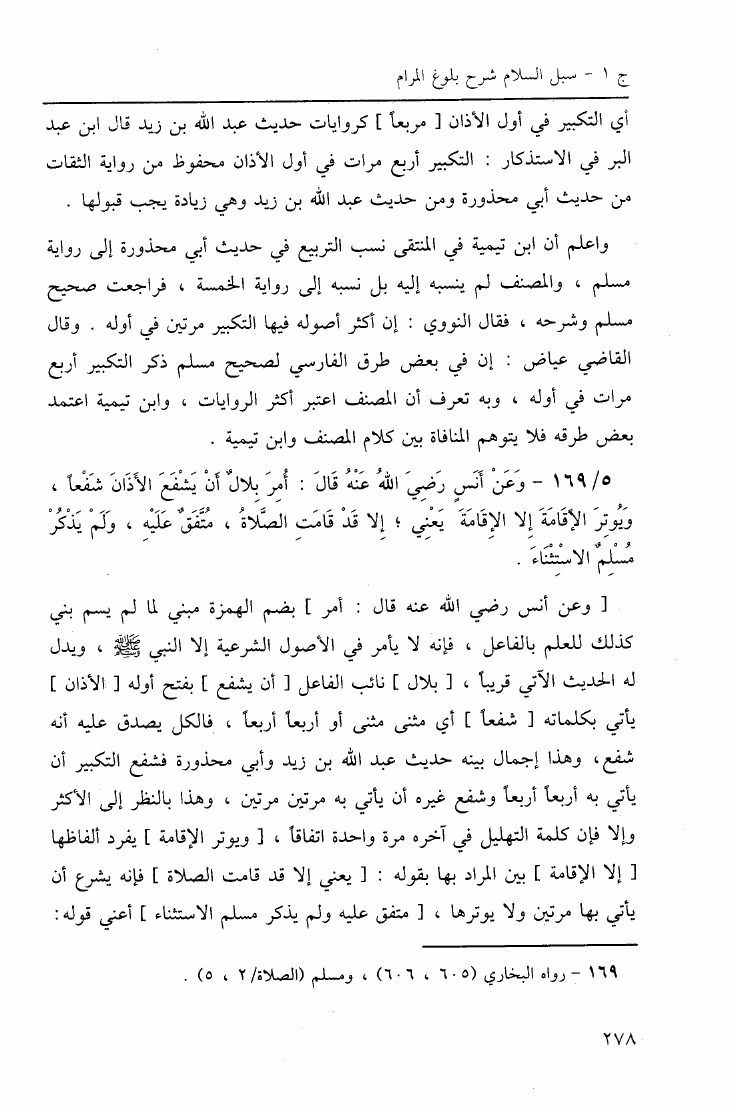 ج ١ - سبل السلام شرح بلوغ المرام
أي التكبير في أول الأذان [ مربعاً ] كروايات حديث عبد الله بن زيد قال ابن عبد
البر في الاستذكار : التكبير أربع مرات في أول الأذان محفوظ من رواية الثقات
من حديث أبي محذورة ومن حديث عبد الله بن زيد وهي زيادة يجب قبولها .
واعلم أن ابن تيمية في المنتقى نسب التربيع في حديث أبي محذورة إلى رواية
مسلم ، والمصنف لم ينسبه إليه بل نسبه إلى رواية الخمسة ، فراجعت صحيح
مسلم وشرحه ، فقال النووي : إن أكثر أصوله فيها التكبير مرتين في أوله . وقال
القاضي عياض : إن في بعض طرق الفارسي لصحيح مسلم ذكر التكبير أربع
مرات في أوله ، وبه تعرف أن المصنف اعتبر أكثر الروايات ، وابن تيمية اعتمد
بعض طرقه فلا يتوهم المنافاة بين كلام المصنف وابن تيمية .
١٦٩/٥ - وَعَنْ أَنَسٍ رَضِيَ اللهُ عَنْهُ قَالَ : أُمِرَ بِلالٌ أَنْ يَشْفَعَ الأَذَانَ شَفْعاً ،
وَيُوتِرَ الأَقَامَةَ إِلا الإِقَامَةَ يَعْنِي ؛ إِلا قَدْ قَامَتِ الصَّلاةُ ، مُتَّفَقٌ عَلَيْهِ ، وَلَمْ يَذْكُرْ
مُسْلِمٌ الاسْتِثْنَاءَ .
[ وعن أنس رضي الله عنه قال : أمر ] بضم الهمزة مبني لما لم يسم بني
كذلك للعلم بالفاعل ، فإنه لا يأمر في الأصول الشرعية إلا النبي ﷺ ، ويدل
له الحديث الآتي قريباً ، [ بلال ] نائب الفاعل [ أن يشفع ] بفتح أوله [ الأذان ]
يأتي بكلماته [ شفعاً ] أي مثنى مثنى أو أربعاً أربعاً ، فالكل يصدق عليه أنه
شفع، وهذا إجمال بينه حديث عبد الله بن زيد وأبي محذورة فشفع التكبير أن
يأتي به أربعاً أربعاً وشفع غيره أن يأتي به مرتين مرتين ، وهذا بالنظر إلى الأكثر
وإلا فإن كلمة التهليل في آخره مرة واحدة اتفاقاً ، [ ويوتر الإقامة ] يفرد ألفاظها
[ إلا الإقامة ] بين المراد بها بقوله : [ يعني إلا قد قامت الصلاة ] فإنه يشرع أن
يأتي بها مرتين ولا يوترها ، [ متفق عليه ولم يذكر مسلم الاستثناء ] أعني قوله:
١٦٩ - رواه البخاري (٦٠٥ ، ٦٠٦) ، ومسلم (الصلاة/ ٢ ، ٥) .
٢٧٨